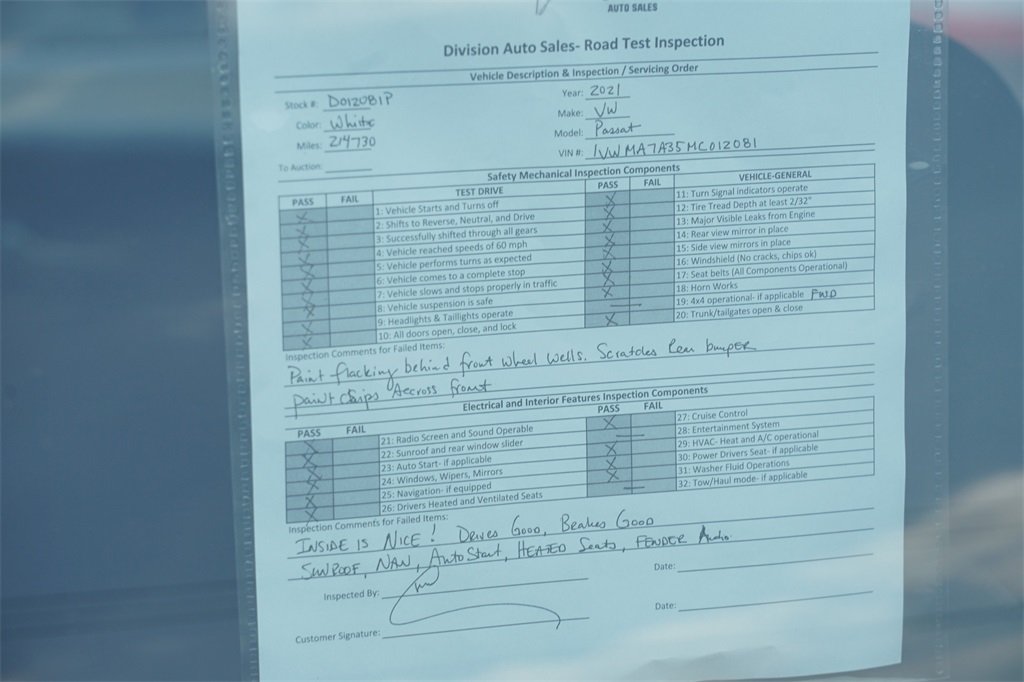 AUTO SALES
Division Auto Sales- Road Test Inspection
Vehicle Description & Inspection / Servicing Order
Stock #: D012081P Year: 2021
Color: White Make: VW
Miles: 214730 Model: Passat
To Auction: VIN #: 1VWMA7A35MC012081
Safety Mechanical Inspection Components
PASS FAIL TEST DRIVE PASS FAIL VEHICLE-GENERAL
X 1: Vehicle Starts and Turns off X 11: Turn Signal indicators operate
X 2: Shifts to Reverse, Neutral, and Drive X 12: Tire Tread Depth at least 2/32"
X 3: Successfully shifted through all gears X 13: Major Visible Leaks from Engine
X 4: Vehicle reached speeds of 60 mph X 14: Rear view mirror in place
X 5: Vehicle performs turns as expected X 15: Side view mirrors in place
X 6: Vehicle comes to a complete stop X 16: Windshield (No cracks, chips ok)
X 7: Vehicle slows and stops properly in traffic X 17: Seat belts (All Components Operational)
X 8: Vehicle suspension is safe X 18: Horn Works
X 9: Headlights & Taillights operate — 19: 4x4 operational- if applicable FWD
X 10: All doors open, close, and lock X 20: Trunk/tailgates open & close
Inspection Comments for Failed Items:
Paint flacking behind front wheel wells. Scratches Rear bumper
paint chips Accross front
Electrical and Interior Features Inspection Components
PASS FAIL PASS FAIL
X 21: Radio Screen and Sound Operable X 27: Cruise Control
X 22: Sunroof and rear window slider — 28: Entertainment System
X 23: Auto Start- if applicable X 29: HVAC- Heat and A/C operational
X 24: Windows, Wipers, Mirrors X 30: Power Drivers Seat- if applicable
X 25: Navigation- if equipped X 31: Washer Fluid Operations
X 26: Drivers Heated and Ventilated Seats — 32: Tow/Haul mode- if applicable
Inspection Comments for Failed Items:
INSIDE IS NICE! Drives Good, Brakes Good
SUNROOF, NAV, Auto Start, HEATED Seats, FENDER Audio
Inspected By: Date:
Customer Signature: Date: